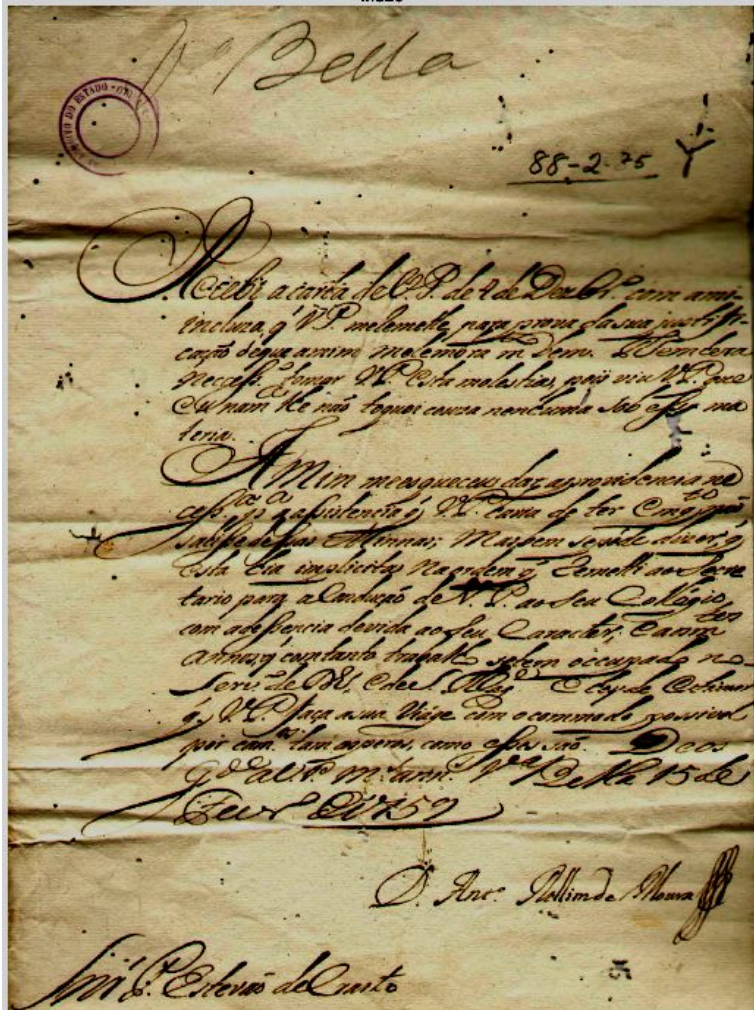 Bella
ARQUIVO DO ESTADO
88-2-75
Recebi a carta de V.P. de 4 de Dezbr.º com a mi-
incluza, q' V.P. me remette para prova da sua justifi-
cação de que a mim
Necess.º tomar V.P. esta molestia, pois viu V.P. que
Eu nam lhe não toquei couza nenhuma sobre essa ma
teria.
A Mim me esqueceu dar as providencia ne
cess.ras p.a a assistencia q' V.P. havia de ter
sahisse dessas Minnas; Mas bem se póde dizer, q'
Esta hia implicita Na ordem q' Remetti ao Secre
tario para a Conduçaõ de V.P. ao Seu Collégio
com a decencia devida ao Seu Caracter,
annos q' com tanto trabalho se tem occupado no
Servi.º de Ds, e de S. Mag.de E
q' V.P. faça a sua Viage com o commodo possivel
por cam.os tam asperos, como esses são. Deos
g.de a V.P. m.s ann.s V.a Bella 15 de
Fevr.º de 1759
D. Ant.º Rollim de Moura
Snr. P. Estevaõ de Crasto